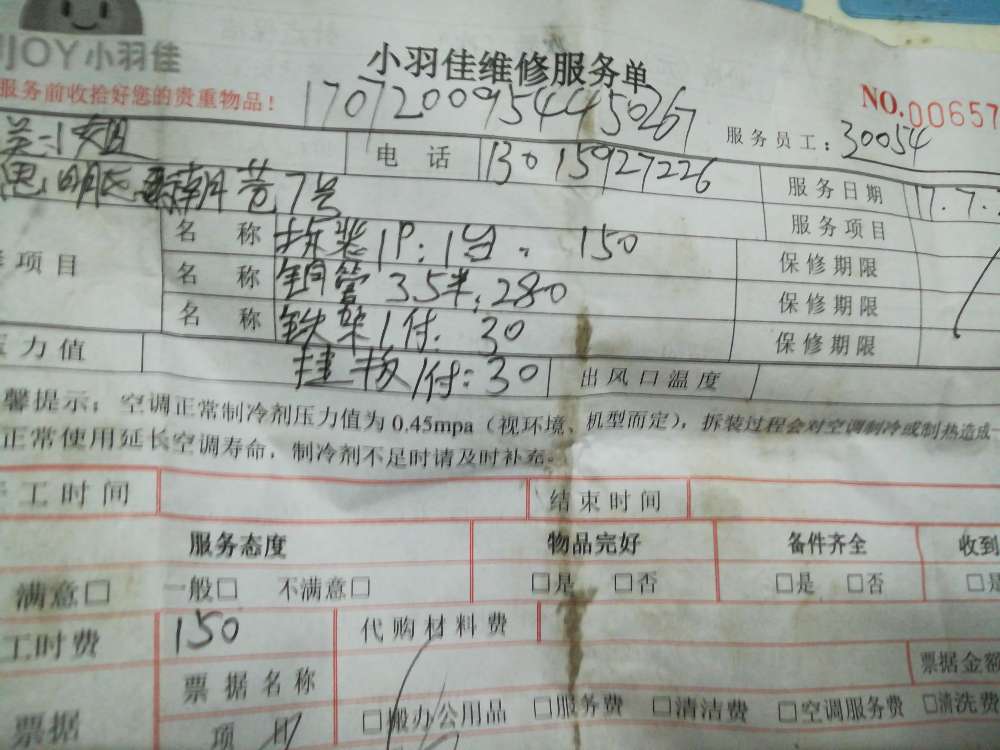 JOY小羽佳
小羽佳维修服务单
服务前收拾好您的贵重物品!
NO.00657
17072009544450267
服务员工: 30054
关小姐
电 话 13015927226 服务日期 17.7.
7号 服务项目
项目 名 称 拆装1P:1台. 150 保修期限
名 称 铜管 3.5半:280 保修期限
名 称 铁架1付: 30 保修期限
力值 挂板1付:30 出风口温度
馨提示: 空调正常制冷剂压力值为0.45mpa(视环境、机型而定), 拆装过程会对空调制冷或制热造成一
正常使用延长空调寿命, 制冷剂不足时请及时补充。
工时间 结束时间
服务态度 物品完好 备件齐全 收到
满意□ 一般□ 不满意□ □是 □否 □是 □否 □是
工时费 150 代购材料费
票据 票据名称 票据金额
项目 □搬办公用品 □服务费 □清洁费 □空调服务费 □清洗费